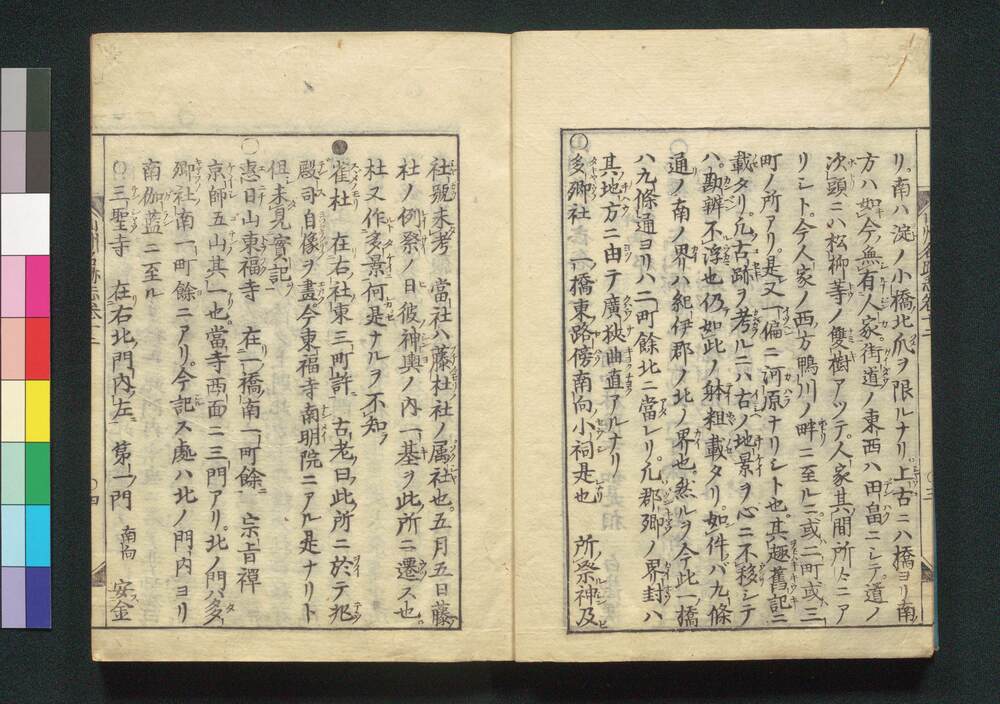 リ。南ハ淀ノ小橋北爪ヲ限ルナリ。上古ニハ橋ヨリ南
方ハ如今無有人家街道ノ東西ハ田畠ニシテ道ノ
次頭ニハ松柳等ノ雙樹アツテ人家其間所々ニア
リシト。今人家ノ西方鴨川ノ畔ニ至ルニ或二町或三
町ノ所アリ。是又一偏ニ河原ナリシト也。其趣舊記ニ
載タリ。凡古跡ヲ考ルニハ古ノ地景ヲ心ニ不移シテ
ハ。勘辨不浮也仍如此ノ躰粗載タリ。如件バ九條
通ノ南ノ界ハ紀伊郡ノ北ノ界也。然ルヲ今此一橋
ハ九條通ヨリハ二町餘北ニ當レリ。凡郡郷ノ界封ハ
其地方ニ由テ廣狹曲直アルナリ
多卿社 一橋東路傍南向小祠是也 所祭神及
社號未考 當社ハ藤杜社ノ属社也。五月五日藤
杜ノ例祭ノ日彼神輿ノ内一基ヲ此所ニ遷ス也。
杜又作多景何是ナルヲ不知
雀杜 在右社東三町許 古老曰此所ニ於テ兆
殿司自像ヲ畫今東福寺南明院ニアル是ナリト
但未見實記
○惠日山東福寺 在一橋南一町餘 宗旨禪
京師五山其一也。當寺西面ニ三門アリ。北ノ門ハ多
卿社南一町餘ニアリ。今記ス處ハ北ノ門内ヨリ
南伽藍ニ至ル
○三聖寺 在右北門内左 第一門 南向 安金